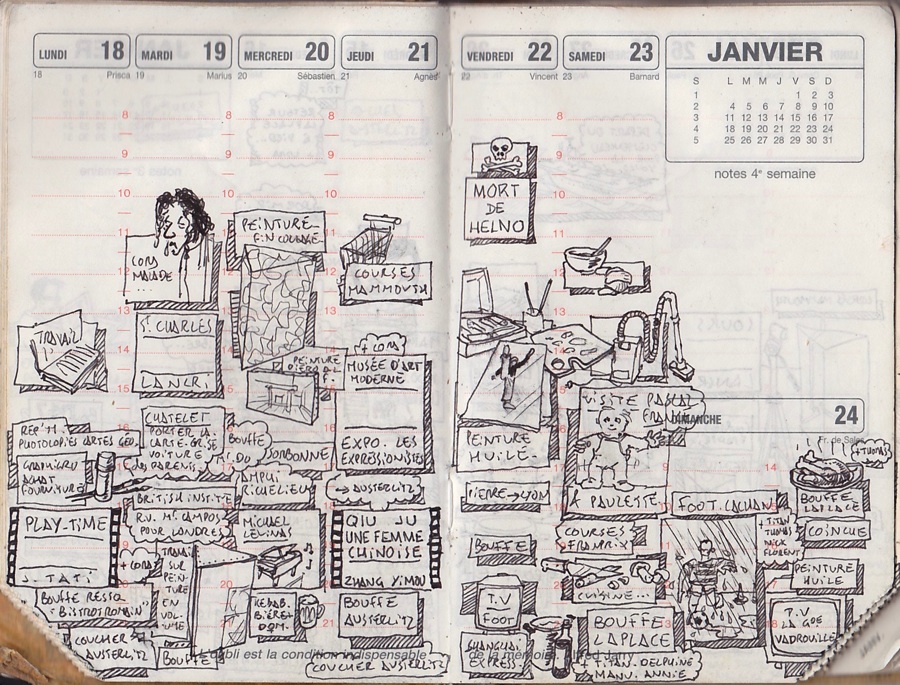 LUNDI 18
18 Prisca
TRAVAIL
PHOTOLOPIES ARTES GÉO.
GRAPHIGRO
ACHAT
FOURNITURE
PLAY-TIME
J. TATI
+ CORA
BOUFFE RESTO
"BISTROT ROMAIN"
COUCHER
AUSTERLITZ
MARDI 19
19 Marius
8
9
10
CORA
MALADE
...
ST CHARLES
LANCRI
CHATELET
PORTER LA
CARTE GRISE
VOITURE
DES PARENTS.
BRITISH INSTITE
R.V. MS CAMPOS
POUR LONDRES
TRAVAIL
SUR
PEIN-
TURE
EN
VOL-
UME
BOUFFE
MERCREDI 20
20 Sébastien
8
9
10
PEINTURE
FIN COULAGE
PEINTURE
BOUFFE
SORBONNE
AMPHI
RICHELIEU
MICHAEL
LEVINAS
KEBAB.
BIÈRE
DOM.
JEUDI 21
21 Agnès
8
9
10
11
COURSES
MAMMOUTH
+ CORA
MUSÉE D'ART
MODERNE
EXPO. LES
EXPRESSIONISTES
→ AUSTERLITZ
QIU JU
UNE FEMME
CHINOISE
ZHANG YIMOU
BOUFFE
AUSTERLITZ
COUCHER AUSTERLITZ
L'oubli est la condition indispensable
VENDREDI 22
22 Vincent
MORT
DE
HELNO
PEINTURE
HUILE.
PIERRE → LYON
BOUFFE
T.V
FOOT
SHANGUAI
EXPRESS.
SAMEDI 23
23 Barnard
8
9
10
11
12
VISITE PASCAL
A PAULETTE
COURSES
FRANPRIX
CUISINE...
BOUFFE
LAPLACE
+ TITAN-DELPHINE
MANU. ANNIE
de la mémoire. Alfred Jarry
JANVIER
S L M M J V S D
1 1 2 3
2 4 5 6 7 8 9 10
3 11 12 13 14 15 16 17
4 18 19 20 21 22 23 24
5 25 26 27 28 29 30 31
notes 4e semaine
DIMANCHE 24
Fr. de Sales
FOOT. CACHAN
+ TITAN
THOMAS
NICK
FLORENT
+ THOMAS
BOUFFE
LAPLACE
COINCHE
PEINTURE
HUILE
T.V
LA GDE
VADROUILLE